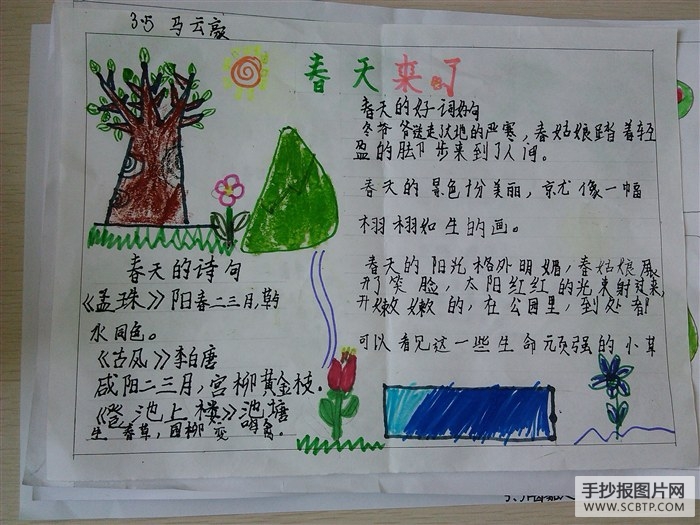 3.5 马云豪
春天来了
春天的好词好句
冬爷爷送走大地的严寒，春姑娘踏着轻
盈的脚步来到了人间。
春天的景色十分美丽，京尤像一幅
栩栩如生的画。
春天的阳光格外明媚，春姑娘展
开了笑脸，太阳红红的光束射过来，
嫩嫩的，在公园里，到处都
可以看见这一些生命顽强的小草
春天的诗句
《孟珠》阳春二三月，草
水同色。
《古风》李白唐
咸阳二三月，宫柳黄金枝.
《登池上楼》池塘
生春草，园柳变鸣禽。
手抄报图片网
WWW.SCBTP.COM